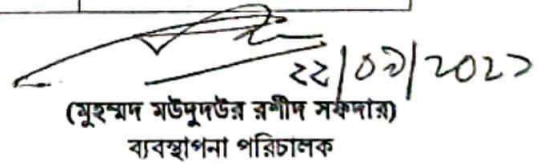 ২২/০৯/২০২১
(মুহম্মদ মউদুদউর রশীদ সফদার)
ব্যবস্থাপনা পরিচালক